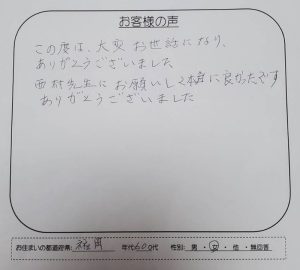 お客様の声
この度は、大変お世話になり、
ありがとうございました
西村先生にお願いして本当に良かったです
ありがとうございました
お住まいの都道府県: 福岡 年代 60代 性別: 男 ・ 女 ・ 他 ・ 無回答